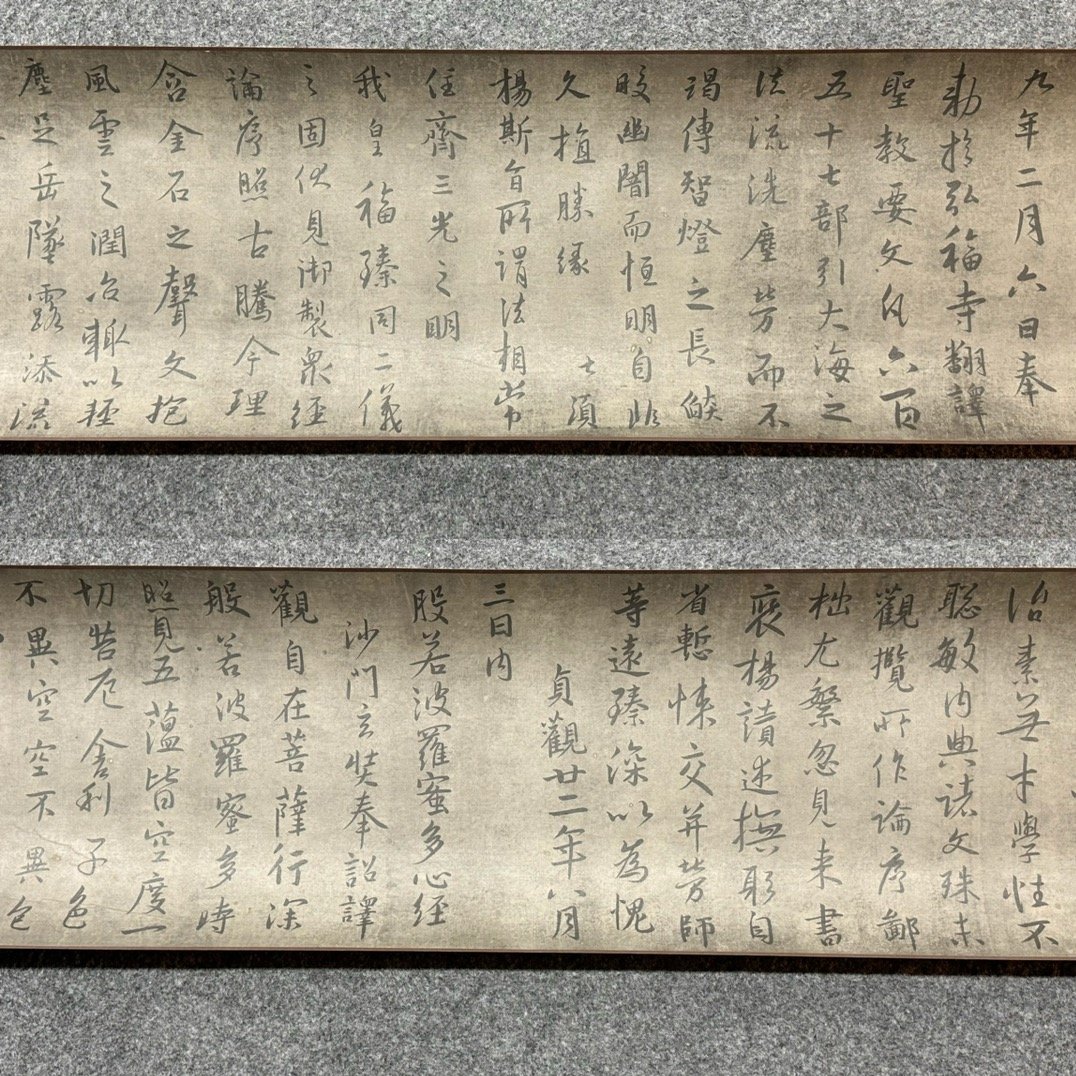 九年二月六日奉
勅於弘福寺翻譯
聖教要文凡六百
五十七部引大海之
法流洗塵勞而不
竭傳智燈之長焰
皎幽闇而恒明自非
久植勝緣
楊斯旨所謂法相常
住齊三光之明
我皇福臻同二儀
之固伏見御製眾經
論序照古騰今理
含金石之聲文抱
風雲之潤治輒以輕
塵足岳墜露添流
治素無才學性不
聰敏內典諸文殊未
觀攬所作論序鄙
拙尤繁忽見來書
褒楊讚述撫躬自
省慙悚交并勞師
等遠臻深以為愧
貞觀廿二年八月
三日內
般若波羅蜜多心經
沙門玄奘奉詔譯
觀自在菩薩行深
般若波羅蜜多時
照見五蘊皆空度一
切苦厄舍利子色
不異空空不異色